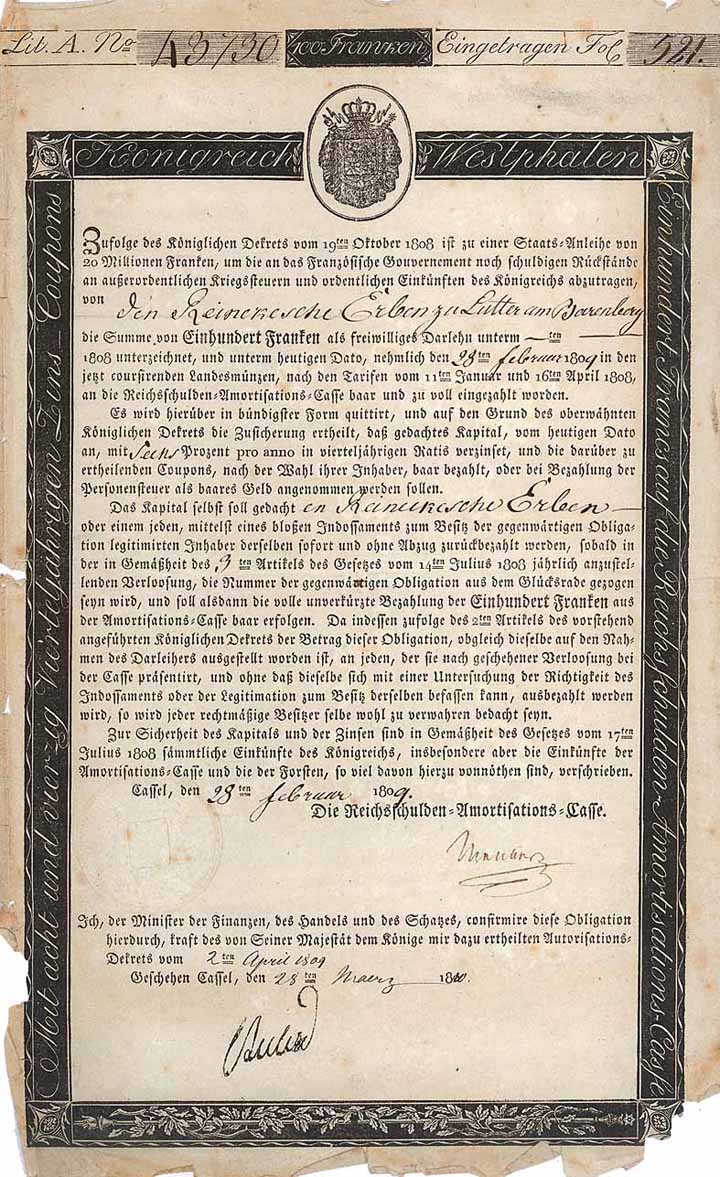 Lit. A. No 43730 100 Franken Eingetragen Fol 521.
Königreich Westphalen
Zufolge des Königlichen Dekrets vom 19ten Oktober 1808 ist zu einer Staats-Anleihe von
20 Millionen Franken, um die an das Französische Gouvernement noch schuldigen Rückstände
an außerordentlichen Kriegssteuern und ordentlichen Einkünften des Königreichs abzutragen,
von den Reinekesche Erben zu Lutter am Barenberg
die Summe von Einhundert Franken als freiwilliges Darlehn unterm — ten
1808 unterzeichnet, und unterm heutigen Dato, nehmlich den 28ten februar 1809 in den
jetzt coursirenden Landesmünzen, nach den Tarifen vom 11ten Januar und 16ten April 1808,
an die Reichsschulden-Amortisations-Casse baar und zu voll eingezahlt worden.
Es wird hierüber in bündigster Form quittirt, und auf den Grund des oberwähnten
Königlichen Dekrets die Zusicherung ertheilt, daß gedachtes Kapital, vom heutigen Dato
an, mit Sechs Prozent pro anno in vierteljährigen Ratis verzinset, und die darüber zu
ertheilenden Coupons, nach der Wahl ihrer Inhaber, baar bezahlt, oder bei Bezahlung der
Personensteuer als baares Geld angenommen werden sollen.
Das Kapital selbst soll gedacht en Reinekesche Erben —
oder einem jeden, mittelst eines bloßen Indossaments zum Besitz der gegenwärtigen Obliga-
tion legitimirten Inhaber derselben sofort und ohne Abzug zurückbezahlt werden, sobald in
der in Gemäßheit des 3ten Artikels des Gesetzes vom 14ten Julius 1808 jährlich anzustel-
lenden Verloosung, die Nummer der gegenwärtigen Obligation aus dem Glücksrade gezogen
seyn wird, und soll alsdann die volle unverkürzte Bezahlung der Einhundert Franken aus
der Amortisations-Casse baar erfolgen. Da indessen zufolge des 2ten Artikels des vorstehend
angeführten Königlichen Dekrets der Betrag dieser Obligation, obgleich dieselbe auf den Nah-
men des Darleihers ausgestellt worden ist, an jeden, der sie nach geschehener Verloosung bei
der Casse präsentirt, und ohne daß dieselbe sich mit einer Untersuchung der Richtigkeit des
Indossaments oder der Legitimation zum Besitz derselben befassen kann, ausbezahlt werden
wird, so wird jeder rechtmäßige Besitzer selbe wohl zu verwahren bedacht seyn.
Zur Sicherheit des Kapitals und der Zinsen sind in Gemäßheit des Gesetzes vom 17ten
Julius 1808 sämmtliche Einkünfte des Königreichs, insbesondere aber die Einkünfte der
Amortisations-Casse und die der Forsten, so viel davon hierzu vonnöthen sind, verschrieben.
Cassel, den 28ten februar 1809.
Die Reichsschulden-Amortisations-Casse.
Ich, der Minister der Finanzen, des Handels und des Schatzes, confirmire diese Obligation
hierdurch, kraft des von Seiner Majestät dem Könige mir dazu ertheilten Autorisations-
Dekrets vom 2ten April 1809
Geschehen Cassel, den 28ten Maerz 1810.
Mit acht und vierzig Vierteljährigen Zins-Coupons
Einhundert Francs auf die Reichsschulden-Amortisations-Casse